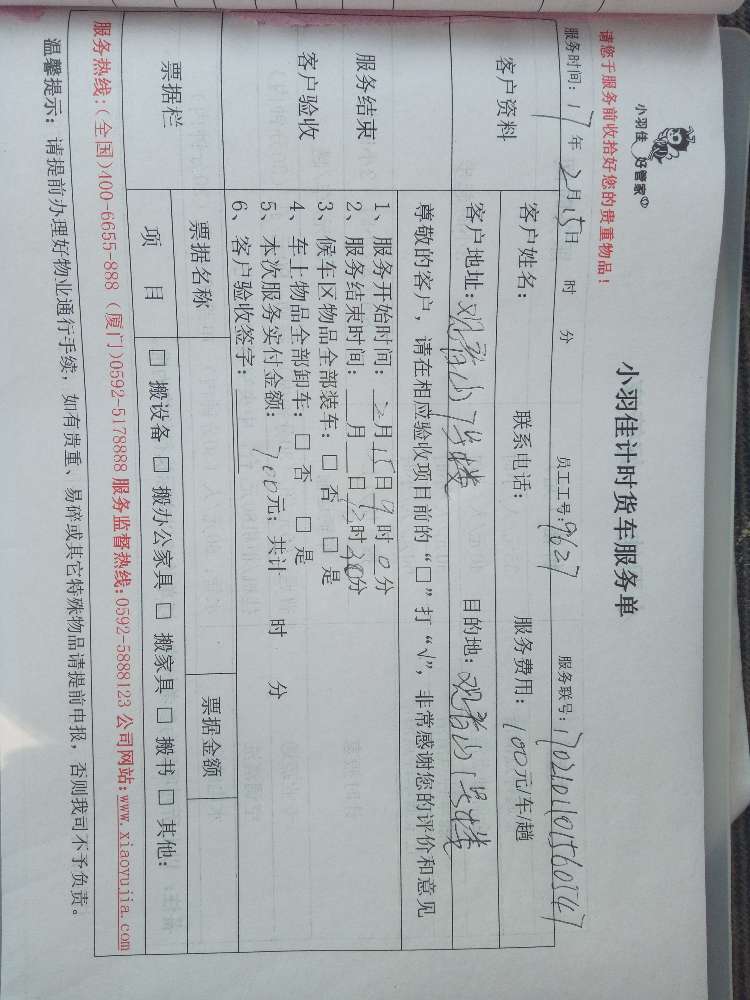 小羽佳 好管家
小羽佳计时货车服务单
请您于服务前收拾好您的贵重物品!
服务时间: 17年 2月 15日 时 分 员工工号: 9627 服务联号:
客户资料
客户姓名: 联系电话: 服务费用: 100元/车/趟
客户地址: 观音山1号楼 目的地: 观音山1号楼
服务结束
客户验收
尊敬的客户, 请在相应验收项目前的“□”打“√”, 非常感谢您的评价和意见
1、服务开始时间: 2月15日9时0分
2、服务结束时间: 月 日12时30分
3、候车区物品全部装车: □ 否 □ 是
4、车上物品全部卸车: □ 否 □ 是
5、本次服务实付金额: 700元; 共计 时 分
6、客户验收签字:
票据栏
票据名称 票据金额
项 目 □ 搬设备 □ 搬办公家具 □ 搬家具 □ 搬书 □ 其他:
服务热线:(全国)400-6655-888 (厦门)0592-5178888 服务监督热线:0592-5888123 公司网站:www.xiaoyujia.com
温馨提示: 请提前办理好物业通行手续, 如有贵重、易碎或其它特殊物品请提前申报, 否则我司不予负责。